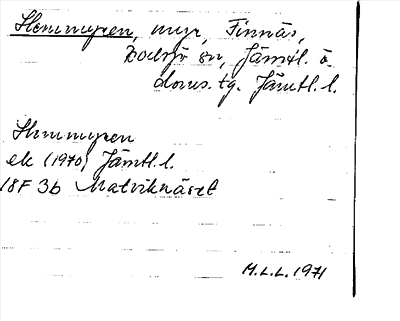 Hemmyren, myr, Finnäs,
Bodsjö sn, Jämtl. ö.
doms. tg. Jämtl. l.
Hemmyren
ek (1970) Jämtl. l.
18F 3b Matviknäset
M.L.L. 1971